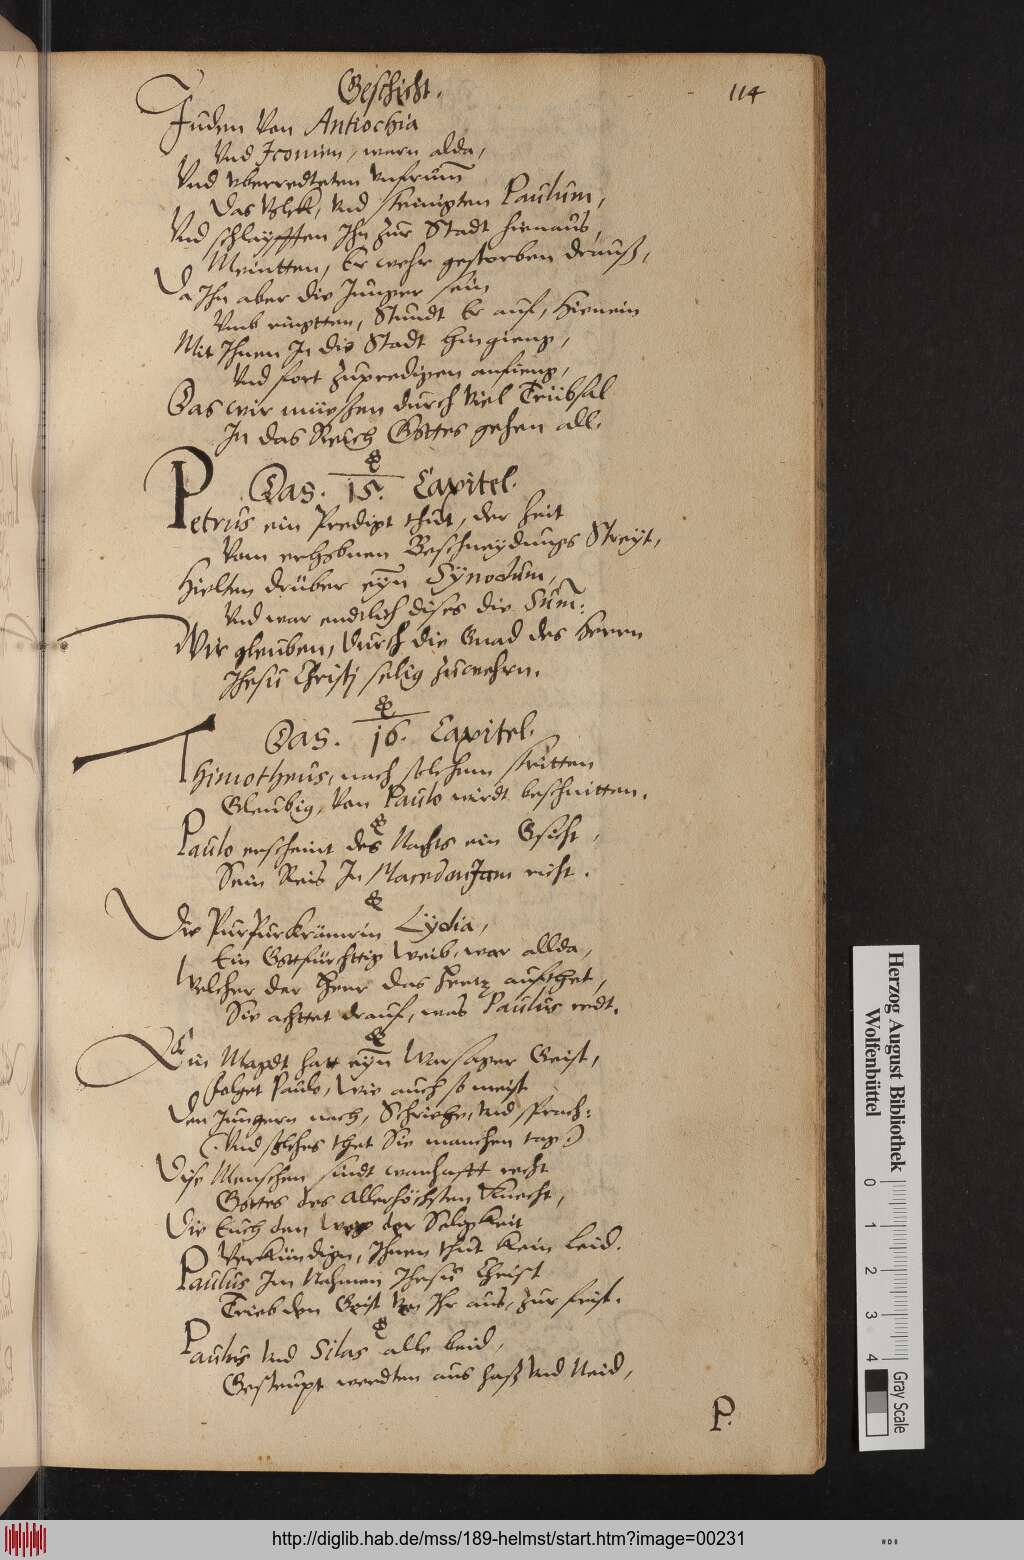 Geschicht.
114
Juden von Antiochia
Vnd Iconien, warn alda,
Vnd vberredteten vnfrumm
Das Volck, vnd steinigten Paulum,
Vnd schlaypfften Ihn zur Stadt hienaus,
Meintten, Er wehr gestorben drauß,
Da Ihn aber die Junger sein
Vmb ringtten, Stundt Er auf, hienein
Mit Ihnen In die Stadt hingieng,
Vnd fort zupredigen anfieng,
Das wir müessen durch viel Trübsal
In das Reich Gottes gehen all.
Das. 15. Capitel.
Petrus ein Predigt thut, der Zeit
Vom erhobnen Beschneydungs Streyt,
Hielten drüber eyn Synodum,
Vnd war endtlich dises die Sum:
Wir gleuben, durch die Gnad des Herrn
Jhesu Christj selig zuwehrn.
Das. 16. Capitel.
Thimotheus, nach solchem stritten
Gleubig, von Paulo wirdt beschnitten.
Paulo erscheint des Nachts ein Gsicht,
Sein Reis In Macedoniam richt.
Die PurPurkrämerin Lydia,
Ein Gottfürchttig weib, war allda,
Welcher der Herr das Hertz aufthet,
Sie achttet drauf, was Paulus redt.
Ein Magdt hatt eyn Warsager Geist,
folget Paulo, wie auch so meist
Den Jungern nach, Schriehe, vnd sprach:
(Vnd solches thet Sie manchen tag)
Dise Menschen sindt warhafft recht
Gottes des Allerhöchsten Knecht,
Die Euch den weg der Seligkeit
Verkündign, Ihnen thut kein leid.
Paulus Im Nahmen Jhesu Christ
Trieb den Geist von Ihr aus, zur frist.
Paulus vnd Silas alle beid,
Gesteupt werdten aus haß vnd Neid,
P.
Herzog August Bibliothek
Wolfenbüttel
0 1 2 3 4
Gray Scale
http://diglib.hab.de/mss/189-helmst/start.htm?image=00231